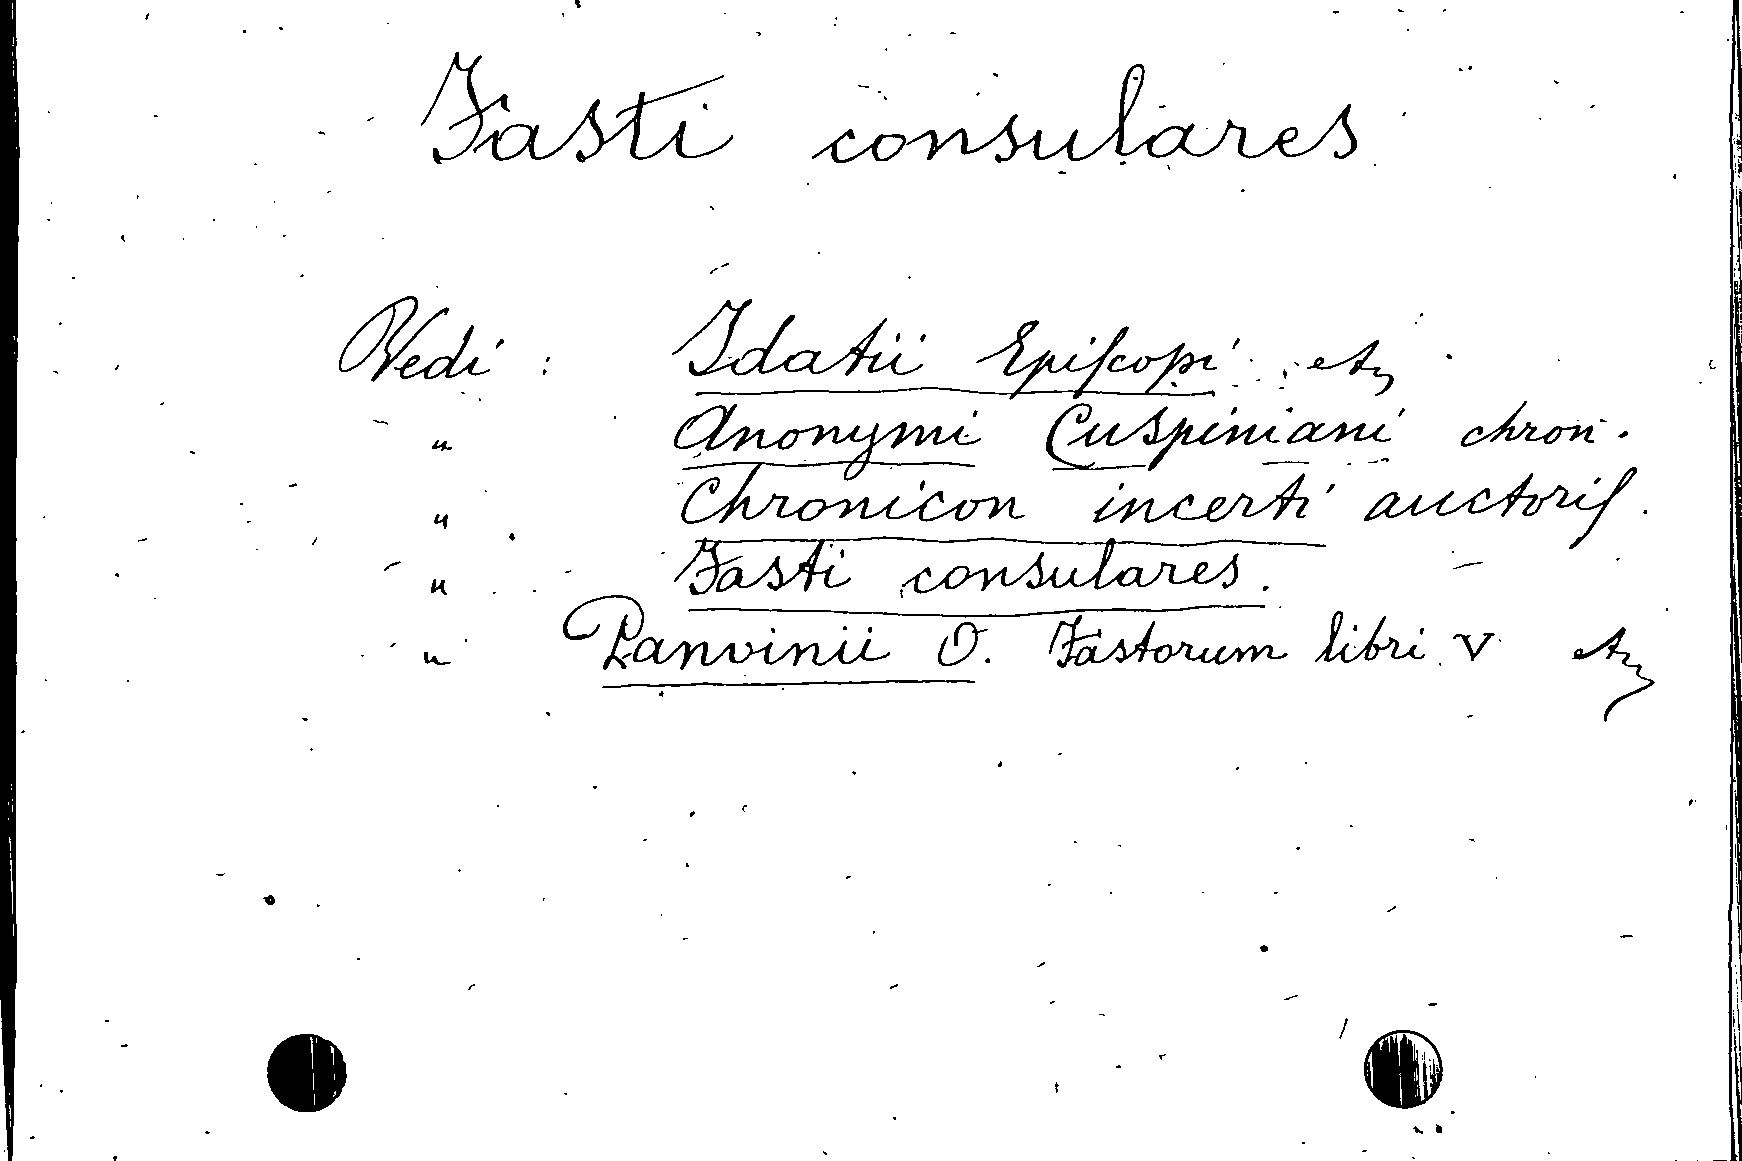 Fasti consulares
Vedi : Idatii Epiſcopi etc
" Anonymi Cuspiniani chron.
" Chronicon incerti auctoriſ.
" Fasti consulares.
" Panvinii O. Fastorum libri V etc